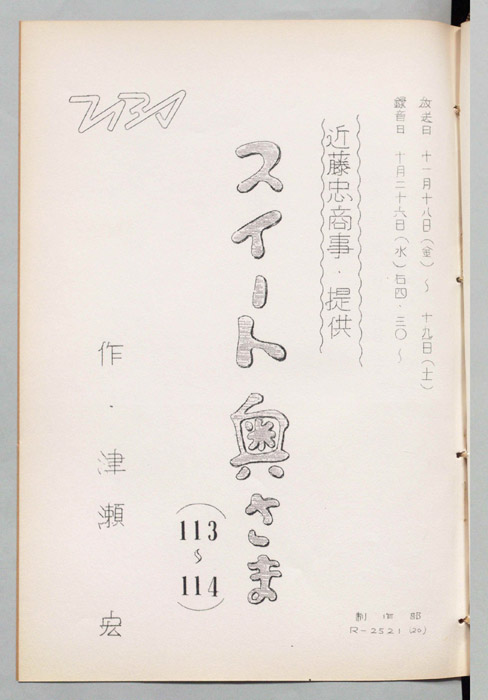 放送日 十一月十八日(金)〜 十九日(土)
録音日 十月二十六日(水)后四・三〇〜
近藤忠商事・提供
スイート奥さま
(113〜114)
作・津瀬宏
制作部
R-2521(26)